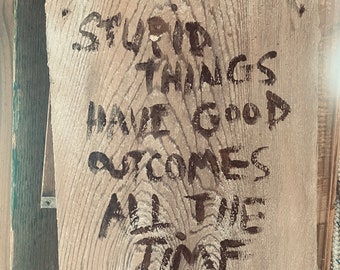 STUPID
THINGS
HAVE GOOD
OUTCOMES
ALL THE
TIME